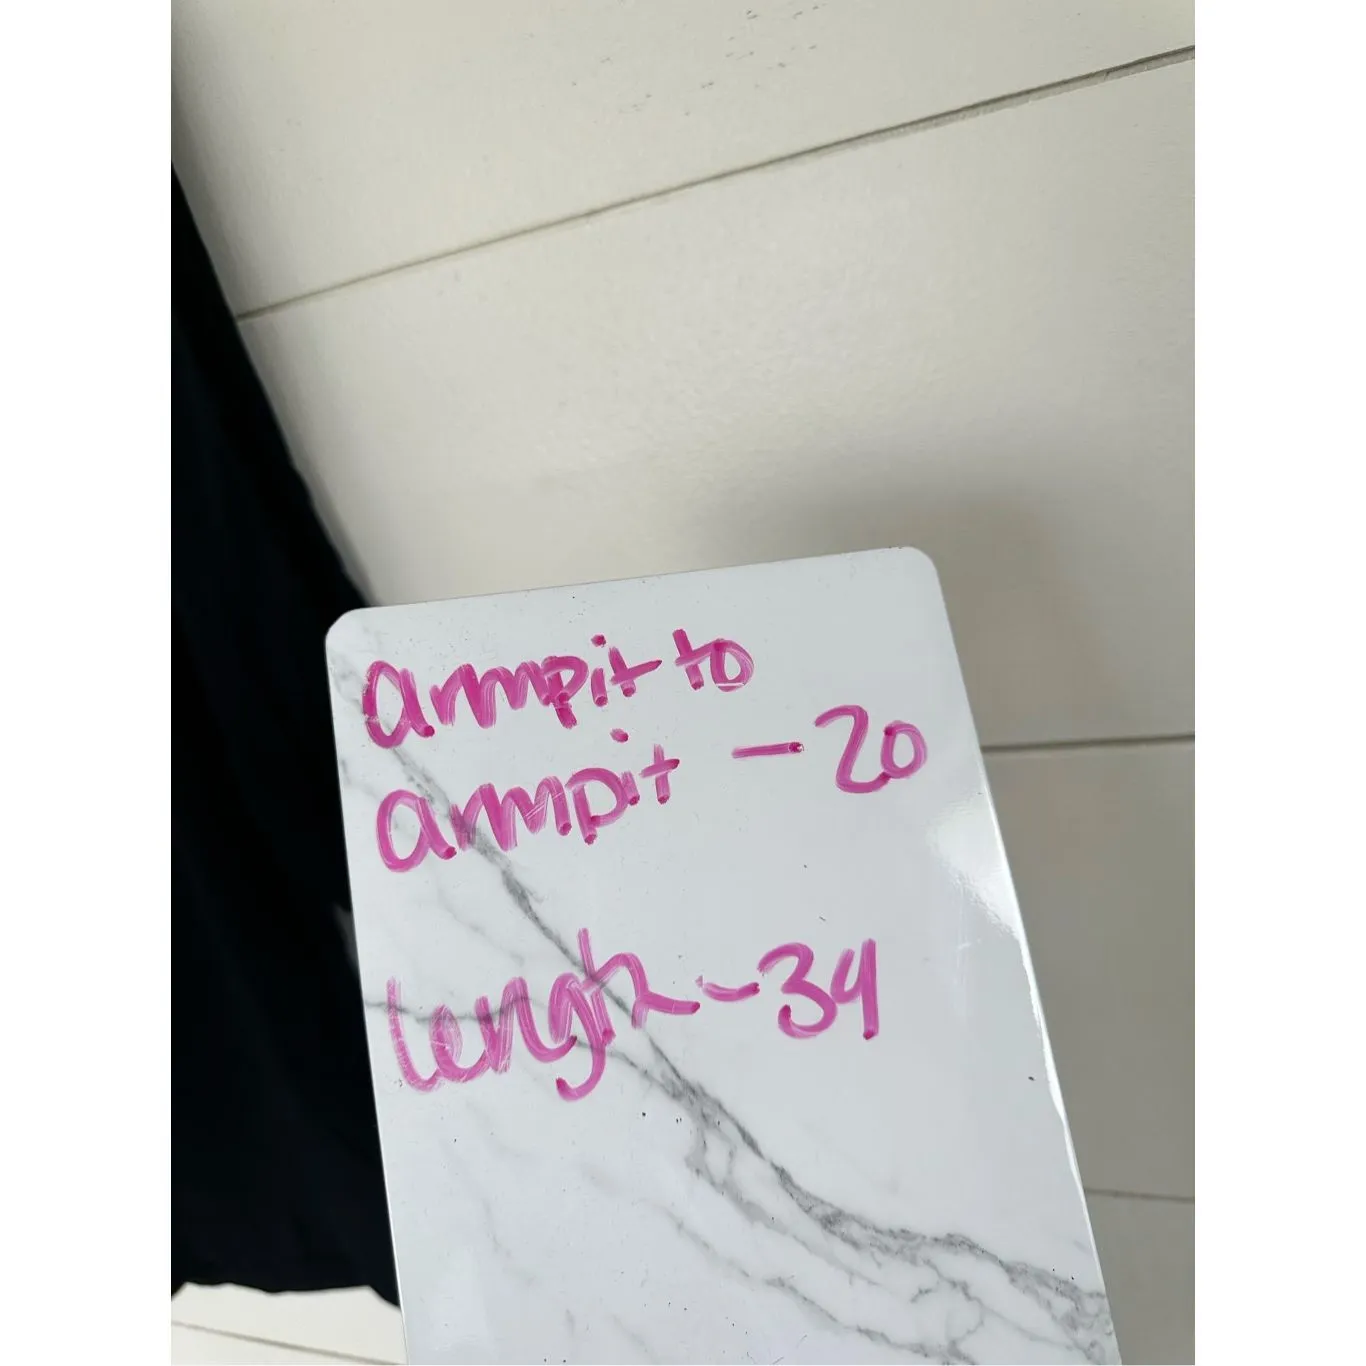 armpit to
armpit - 20
length - 34